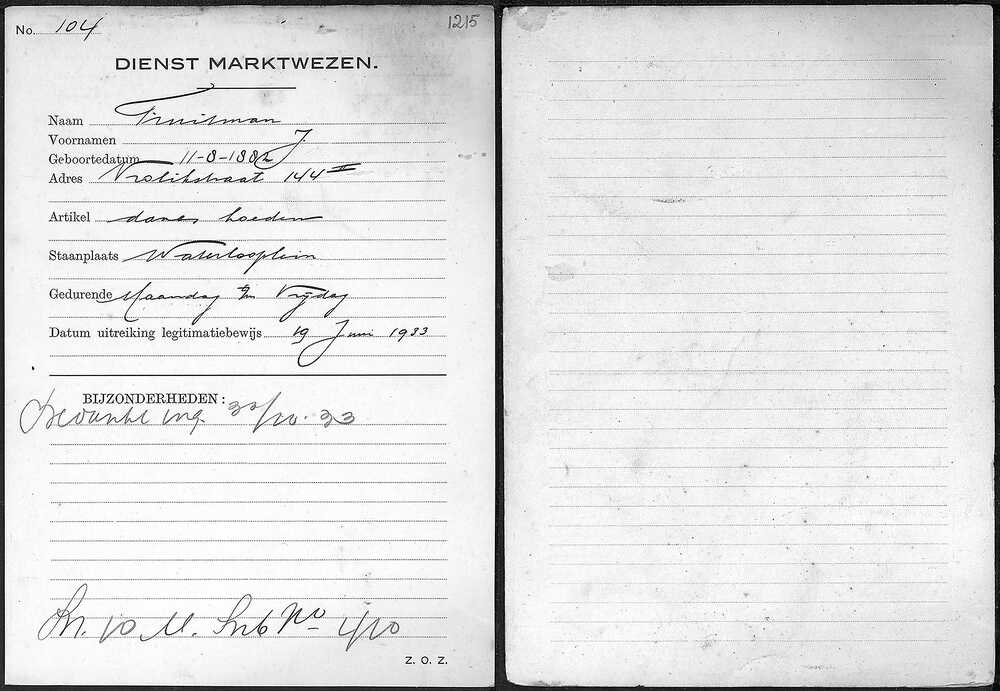 No. 104
1215
DIENST MARKTWEZEN.
Naam Fruitman
Voornamen J
Geboortedatum 11-8-1882
Adres Vrolikstraat 144 II
Artikel dames hoeden
Staanplaats Waterlooplein
Gedurende Maandag t/m Vrijdag
Datum uitreiking legitimatiebewijs 19 Juni 1933
BIJZONDERHEDEN:
ing. 30/10.33
M. No 410
Z. O. Z.